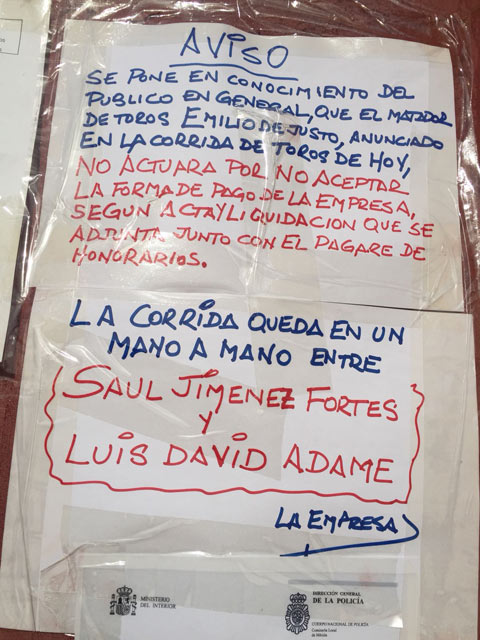 AVISO
SE PONE EN CONOCIMIENTO DEL
PUBLICO EN GENERAL, QUE EL MATADOR
DE TOROS EMILIO DE JUSTO, ANUNCIADO
EN LA CORRIDA DE TOROS DE HOY,
NO ACTUARA POR NO ACEPTAR
LA FORMA DE PAGO DE LA EMPRESA,
SEGUN ACTA Y LIQUIDACION QUE SE
ADJUNTA JUNTO CON EL PAGARE DE
HONORARIOS.
LA CORRIDA QUEDA EN UN
MANO A MANO ENTRE
SAUL JIMENEZ FORTES
Y
LUIS DAVID ADAME
LA EMPRESA
MINISTERIO
DEL INTERIOR
DIRECCIÓN GENERAL
DE LA POLICÍA
CUERPO NACIONAL DE POLICÍA
Comisaría Local